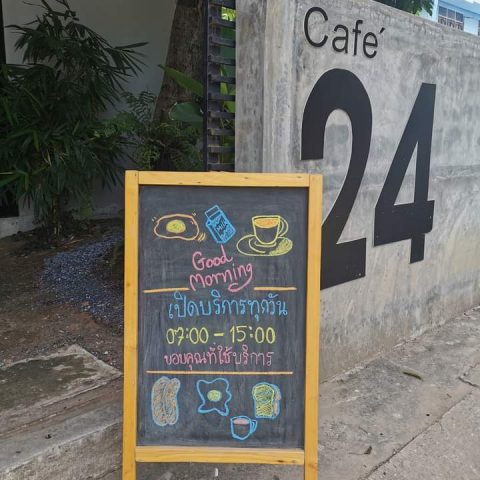 Café
24
Milk
Good
Morning
เปิดบริการทุกวัน
07:00 - 15:00
ขอบคุณที่ใช้บริการ